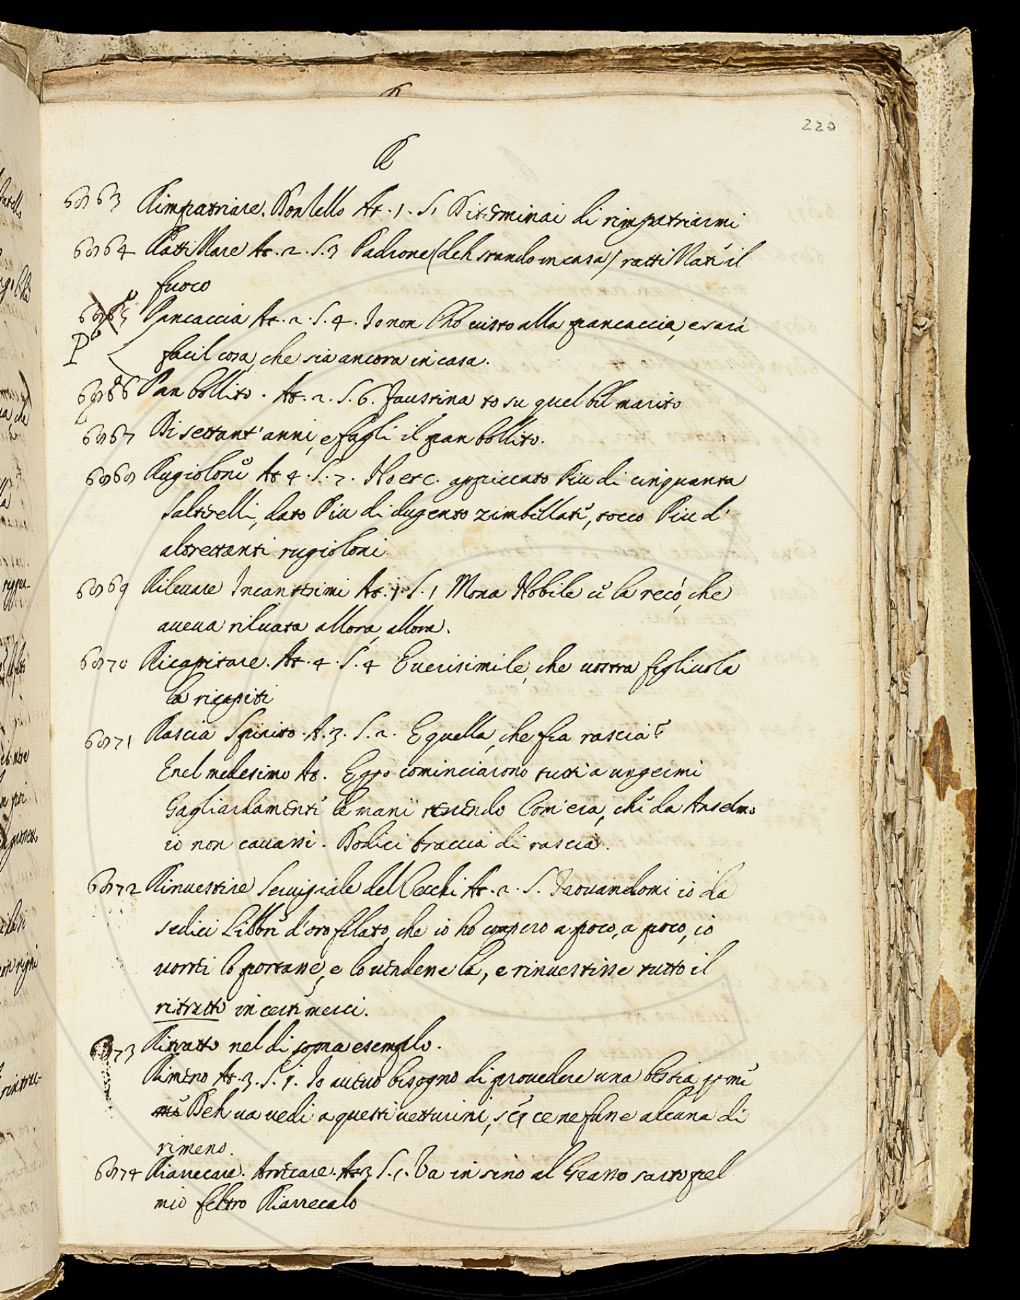 220
R
6963 Rimpatriare. Donzello At. 1. S. 1 Diterminai di rimpatriarmi
6964 Rattizzare At. 2. S. 3 Padrone (deh stando in casa) rattizzati il
fuoco
6965 Pancaccia At. 2. S. 4. Io non l'hò visto alla pancaccia, e sarà
P
facil cosa, che sia ancora in casa.
6966 Pan bollito. At. 2. S. 6. Faustina to su quel bel marito
6967 Di settant' anni, e fagli il pan bollito.
6968 Rugioloni At 4. S. 7. Ho etc. appiccato Piu di cinquanta
Salterelli, dato Piu di dugento zimbellati, tocco Piu d'
altrettanti rugioloni
6969 Rilevare Incantesimi At. 1. S. 1 Mona Nobile ci la recò, che
aveva rilvata allora, allora.
6970 Ricapitare. At. 4. S. 4 E verisimile, che vostra figliuola
la ricapiti
6971 Rascia Spirito. A. 3. S. 2. E quella, che fia rascia?
E nel medesimo At. Eppo cominciarono tutti a ungermi
Gagliardamenti le mani tenendo Com' era, chi da Anselmo
io non cavassi. Dodici braccia di rascia.
6972 Rinvestire Servigiale del Cecchi At. 2. S. Trovandomi io da
sedici Libbri d'oro filato, che io ho compero a poco, a poco, io
vorrei lo portasse, e lo vendene là, e rinvestisse tutto il
ritratto in certi merci.
6973 Ritratto nel di sopra esemplo.
Rimeno At. 3. S. 1. Io avevo bisogno di provedere una bestia p mi
Deh va vedi a questi vetturini, se ce ne fusse alcuna di
rimeno.
6974 Riarrecare. Arrecare. At 3 S. 1. Va in sino al Grasso sarto pel
mio feltro Riarrecalo